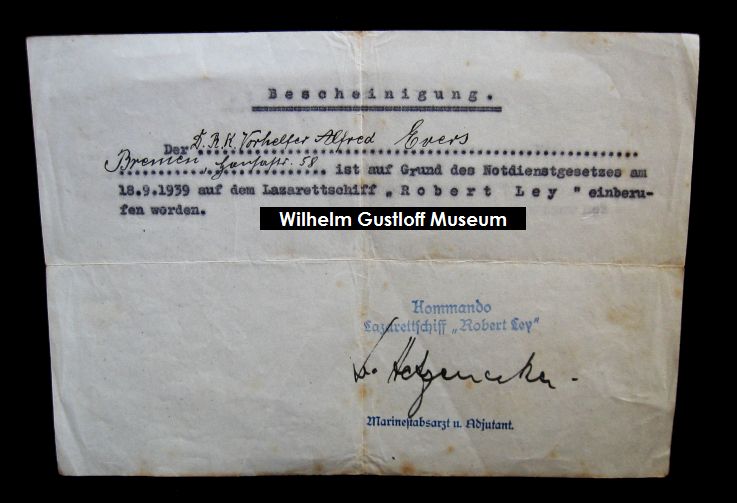 Bescheinigung.
Der D.R.K. Vorhelfer Alfred Evers
Bremen, Hansastr. 58 ist auf Grund des Notdienstgesetzes am
18.9.1939 auf dem Lazarettschiff „Robert Ley" einberu-
fen worden.
Wilhelm Gustloff Museum
Kommando
Lazarettschiff „Robert Ley"
Marinestabsarzt u. Adjutant.